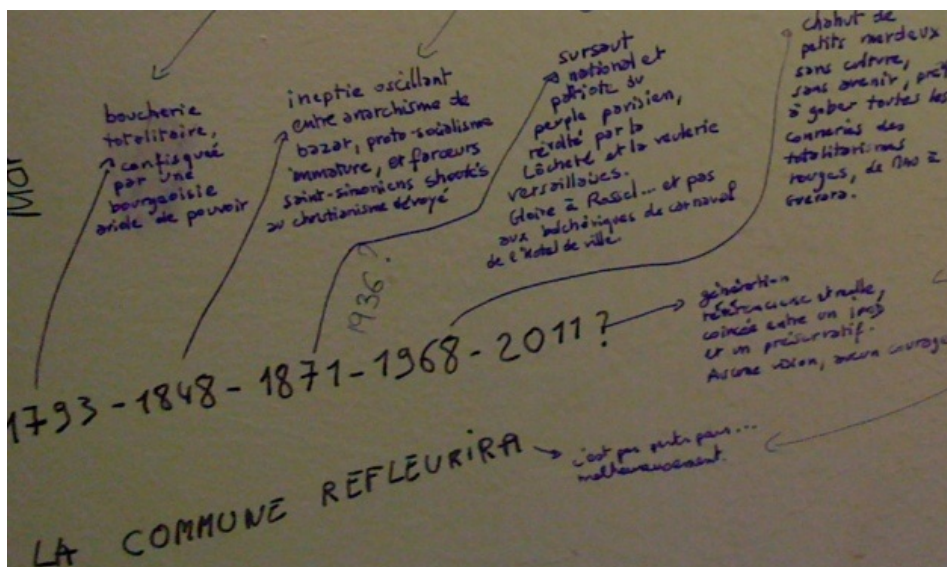 MOI
boucherie
totalitaire,
confisquée
par une
bourgeoisie
avide de pouvoir
ineptie oscillant
entre anarchisme de
bazar, proto-socialisme
immature, et farceurs
saint-simoniens shootés
au christianisme dévoyé
sursaut
national et
patriote du
peuple parisien,
révolté par la
lâcheté et la veulerie
versaillaises.
Gloire à Rossel... et pas
aux bolchéviques de carnaval
de l'Hotel de ville.
chahut de
petits merdeux
sans culture,
sans avenir, prêts
à gober toutes les
conneries des
totalitarismes
rouges, de Mao à
Guevara.
1936?
1793-1848-1871-1968-2011?
génération
et nulle,
coincée entre un IPOD
et un préservatif.
Aucune vision, aucun courage
LA COMMUNE REFLEURIRA
c'est pas gagné...
malheureusement.